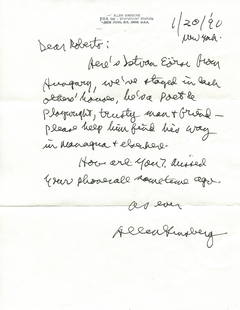 ALLEN GINSBERG
P.O.B. 582, Stuyvesant Station
New York, NY, 10009 USA
1/20/90
New York
Dear Roberto:
Here's Istvan Eörsi from
Hungary, we've stayed in each
others' houses, he's a Poet &
Playwright, trusty man & friend —
please help him find his way
in Managua & elsewhere.
How are you? Missed
your phonecall sometime ago.
as ever
Allen Ginsberg